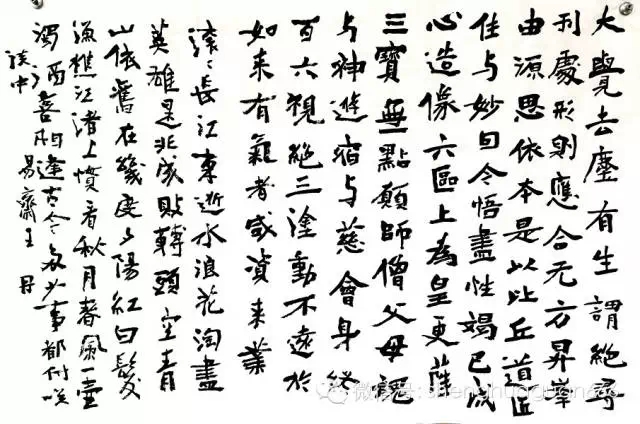 大覺去塵有生謂絕尋
刋處形則應合无方昇岸
由源思依本是以比丘道匠
佳与妙因今悟盡性竭已成
心造像六區上為皇更
三寶無點願師僧父母
与神遊宿与慈會身終
百六視絕三塗動不遠於
如来有氣者咸資来業
滚〻長江東逝水浪花淘盡
英雄是非成敗轉頭空青
山依舊在幾度夕陽紅白髮
漁樵江渚上慣看秋月春風一壺
濁酒喜相逢古今多少事都付咲
談中 易齋王
微信号: